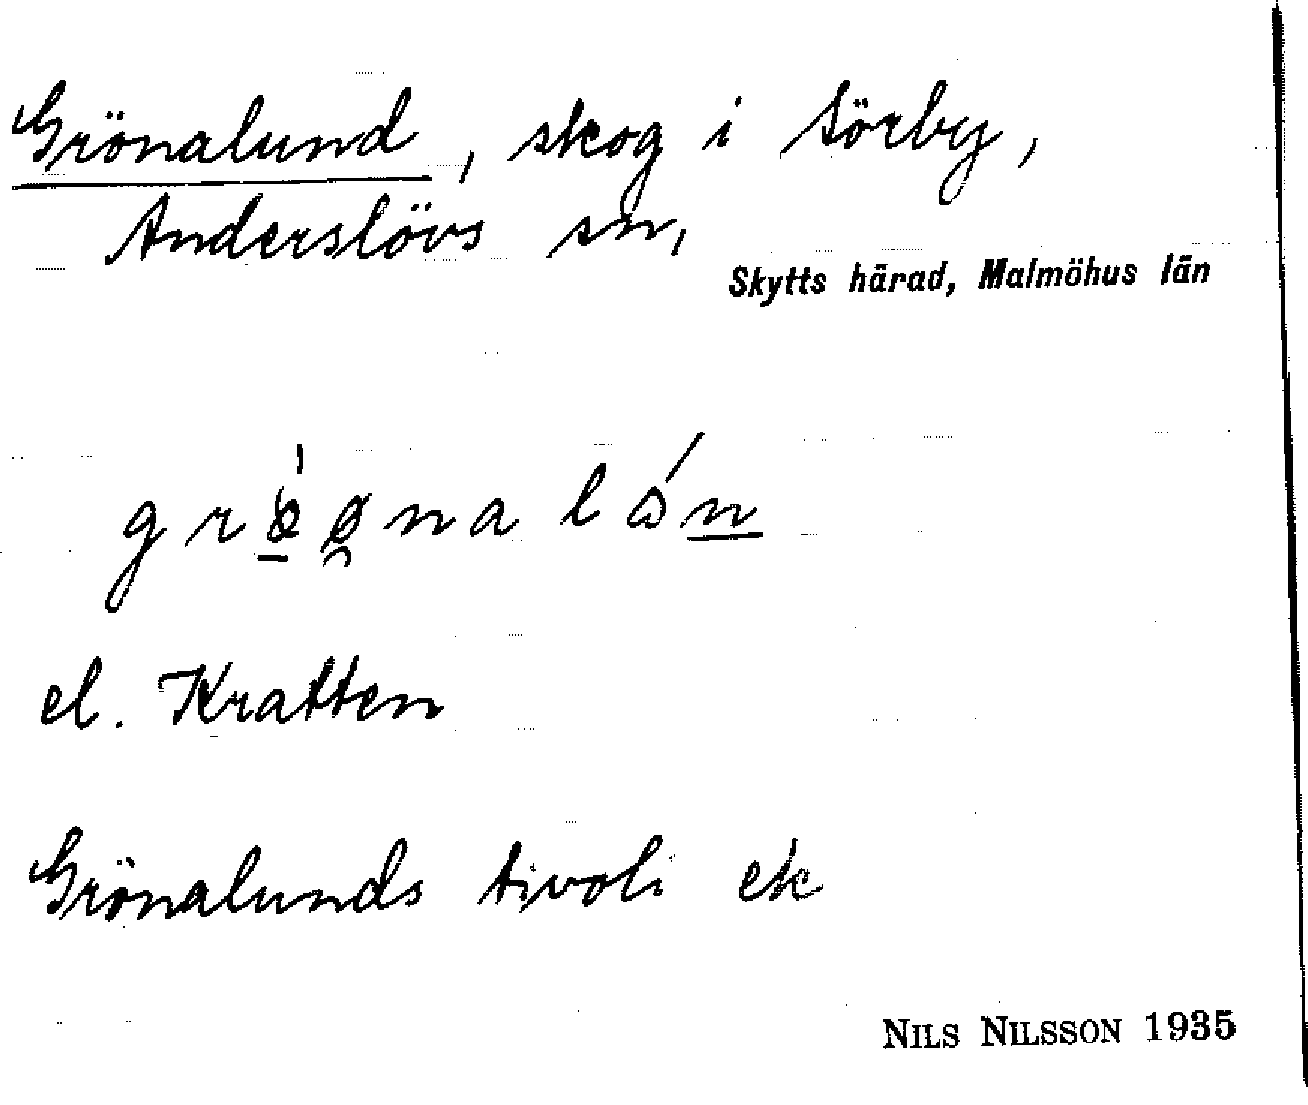 Grönalund, skog i Sörby,
Anderslövs sn,
Skytts härad, Malmöhus län
el. Kratten
Grönalunds tivoli ek
NILS NILSSON 1935